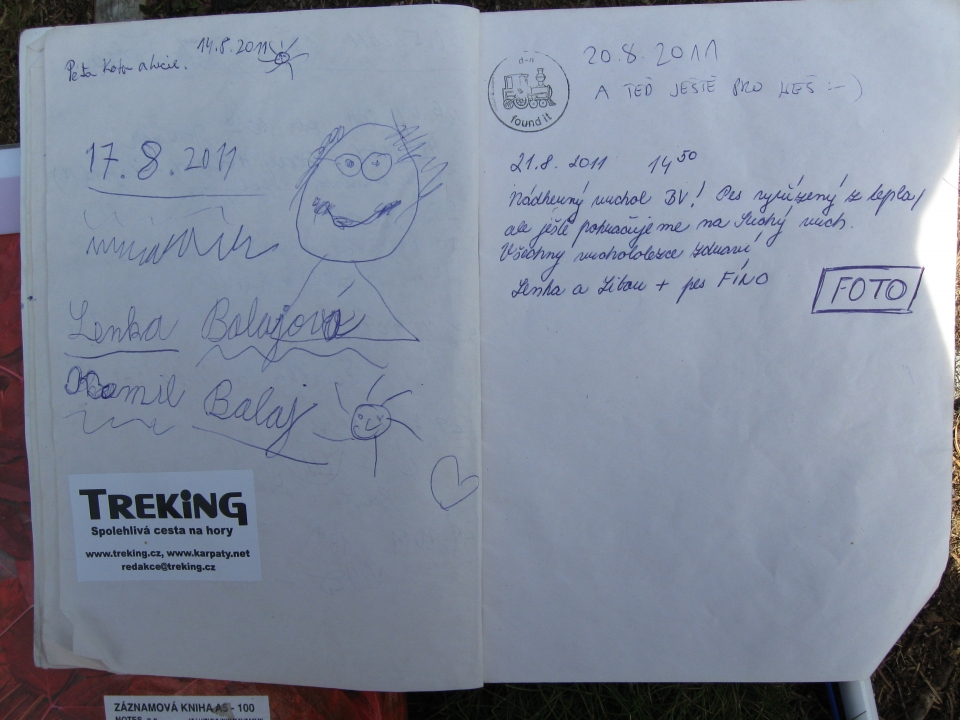 14.8.2011
Peťa Kota a Lucie.
17.8.2011
Lenka Balajová
Kamil Balaj
TREKING
Spolehlivá cesta na hory
www.treking.cz, www.karpaty.net
redakce@treking.cz
ZÁZNAMOVÁ KNIHA A5 - 100
d-n
found it
20.8.2011
A TEĎ JEŠTĚ PRO KEŠ :-)
21.8.2011 14 50
Nádherný vrchol BV! Pes vyřízený z tepla,
ale ještě pokračujeme na Suchý vrch.
Všechny vrchololezce zdraví
Lenka a Libor + pes FÍNO
FOTO